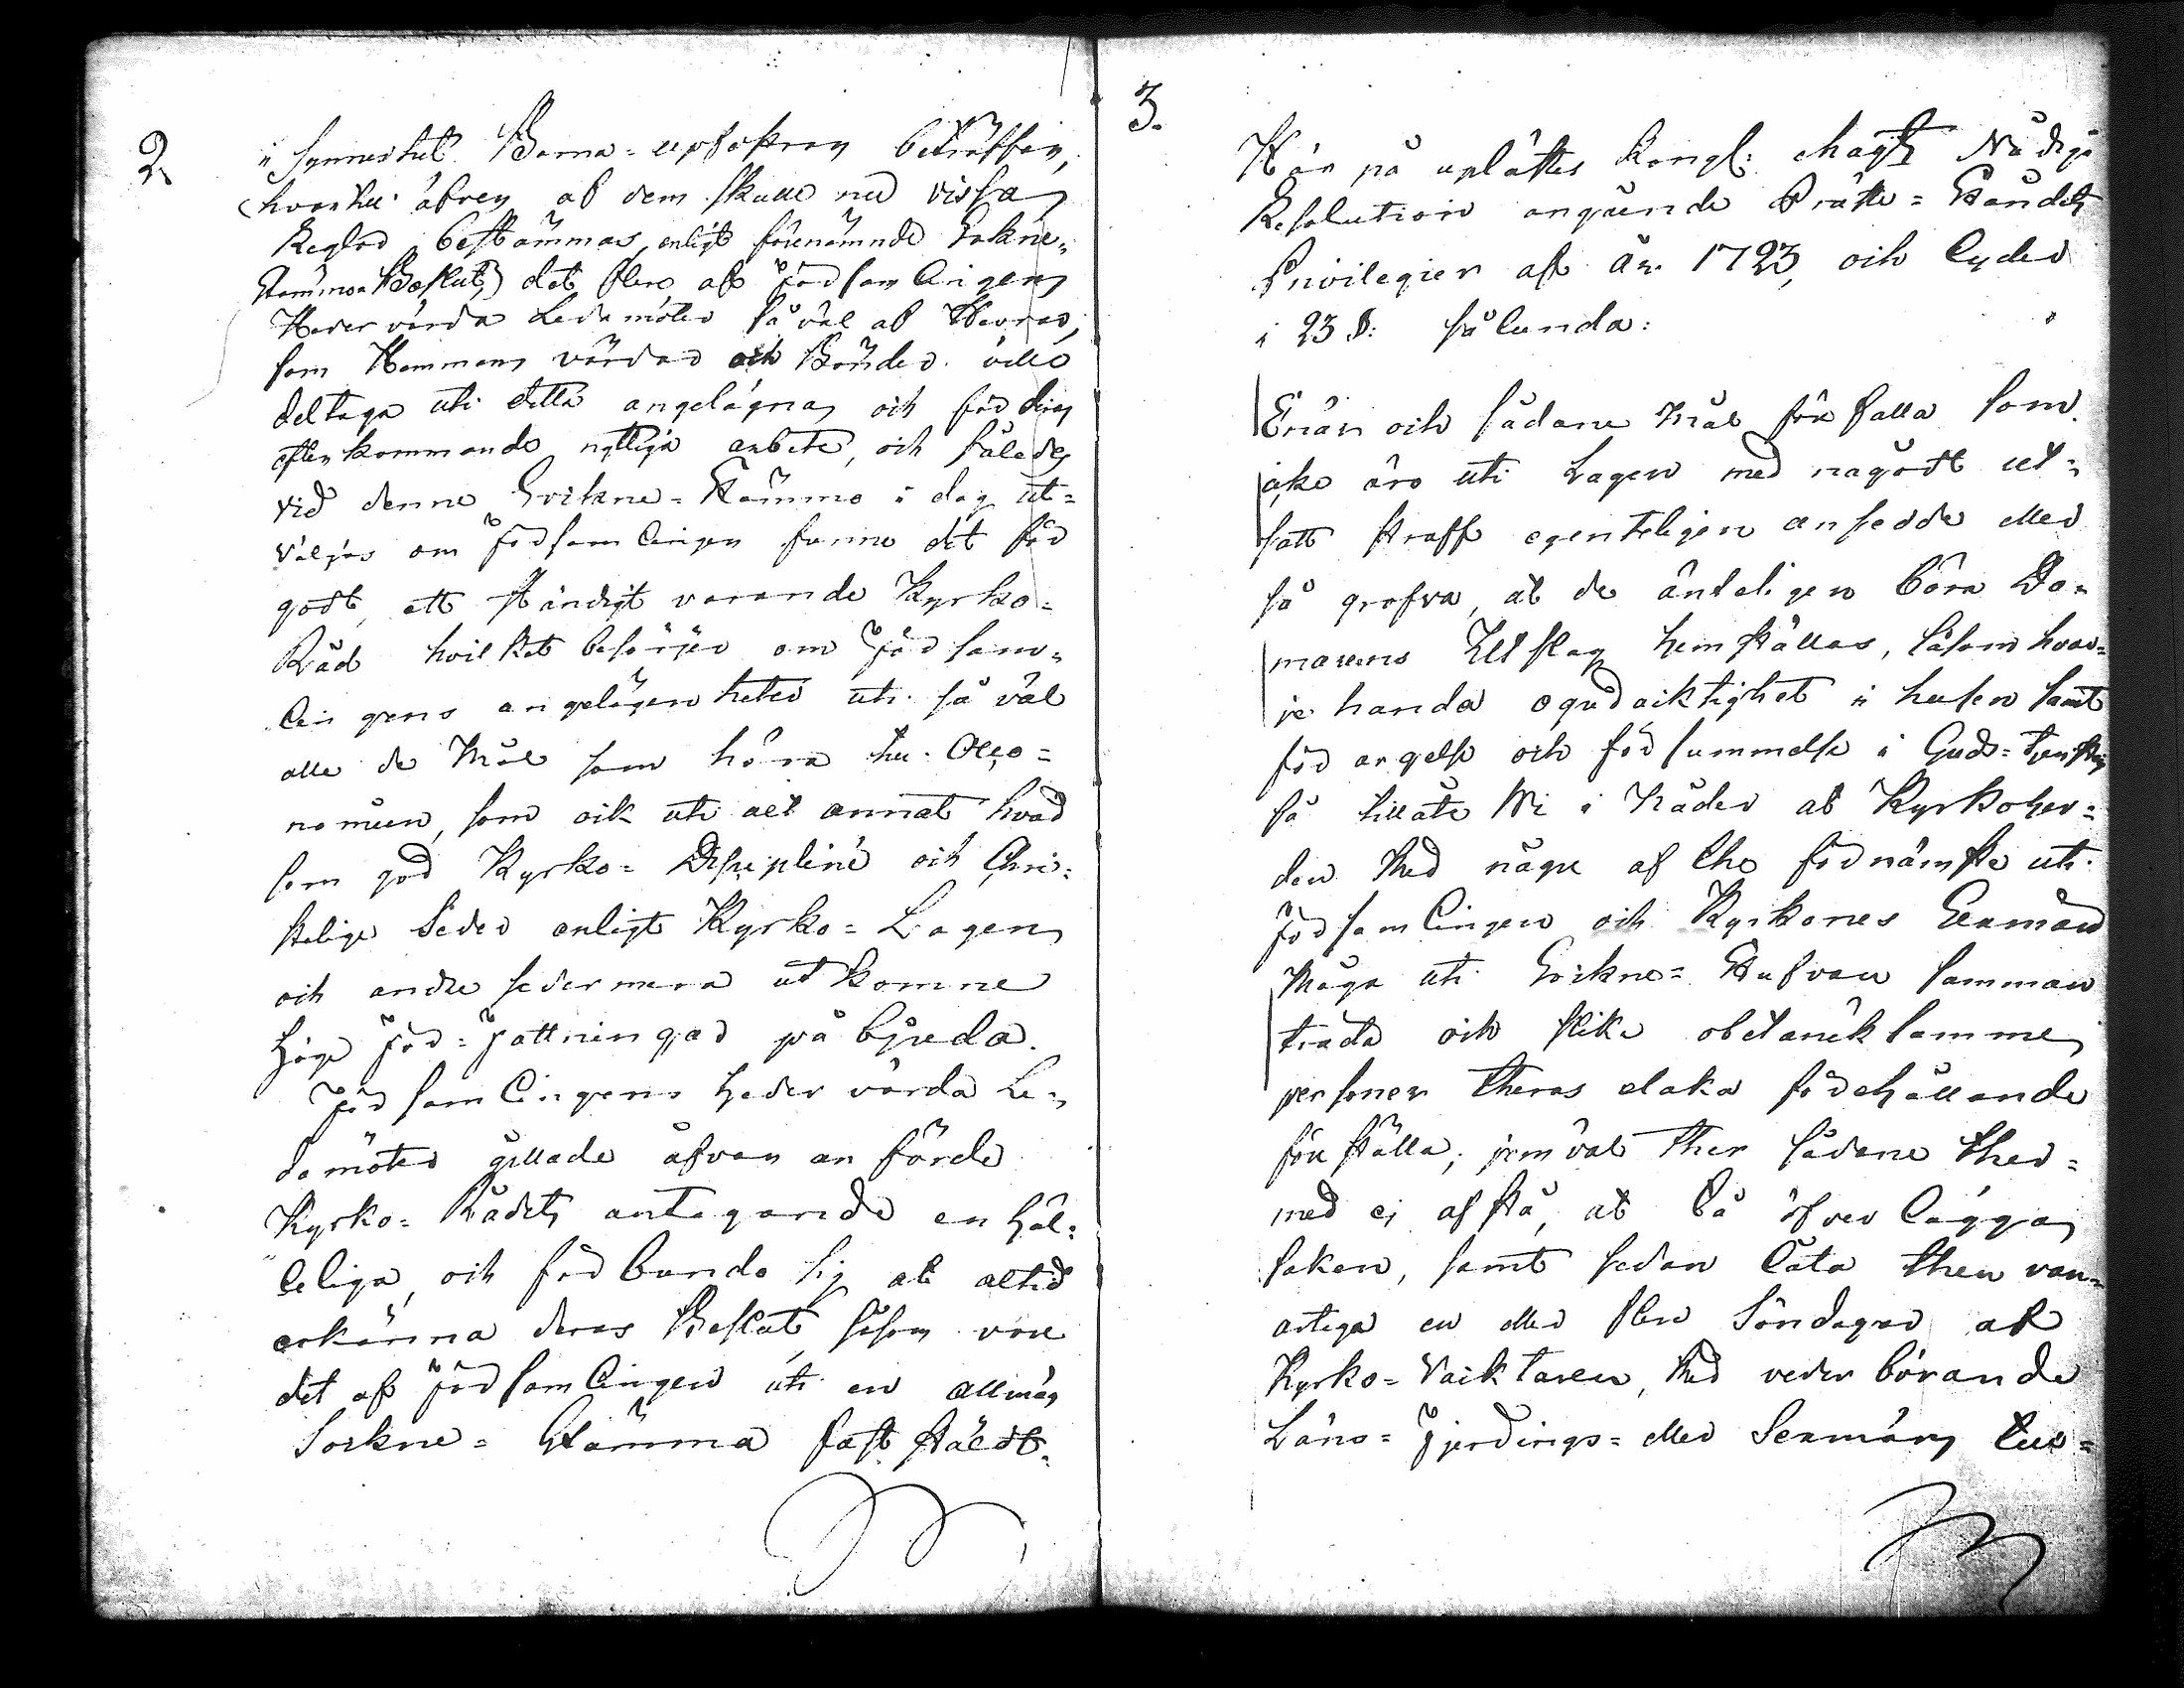 2.
i synnerhet Barna-upfostran beträffar,
(hvartill äfven af dem skulle med vissa
Reglor bestämmas, enligt förenämnde Sokne-
Stämmo Beslut,) det flere af Församlingens
Hedervärda Ledamöter så väl af Herrar,
som Hemmans värdar och Bönder. ville
deltaga uti detta angelägna och för deras
efterkommande nyttiga arbete, och således
vid denne Sockne-Stämmo i dag ut-
väljas om Församlingen funne det för
godt, ett ständigt varande Kyrko-
Råd hvilket besörjer om Försam-
lingens angelägenheter uti så väl
alla de Mål som höra till Oeco-
nomien, som ock uti alt annat hvad
som god Kyrko-Disciplin och Chri-
stelige Seder enligt Kyrko-Lagen
och andre sedermera utkomne
höge Författningar påbjuda.
Församlingens hedervärda Le-
damöter gillade åfvananförde
Kyrko-Rådets antagande enhäl-
leliga, och förbundo sig at altid
erkänna deras Beslut, såsom vore
det af Församlingen uti en allmän
Sockne-Stämma fastställdt.
3.
Här på uplästes Kongl: Maj:ts Nådige
Resolution angående Präste-Ståndets
Privilegier af år 1723, och lyder
i 23 §: sålunda:
Enär och sådane mål förefalla som
icke äro uti Lagen med någodt ut-
satt straff egenteligen ansedde eller
så grofva, at de änteligen böra Do-
marens Utslag hemställas, såsom hvar-
jehanda ogudacktighet i husen samt
förargelse och försummelse i Guds-tjensten
så tillåte Wi i Nåder at Kyrkoher-
den med någre af the förnämste uti
Församlingen och Kyrkones Sexmän
Måga uti Sockne-Stufvan samman
träda och slike obetäncksamme
personer theras elaka förehållande
föreställa; jemväl ther sådane ther-
med ej afstå, at få öfverlägga
saken, samt sedan låta then van-
artiga en eller flere Söndagar af
Kyrko-Vaicktaren, med vederbörande
Läns-Fjerdings- eller Sexmäns tus-